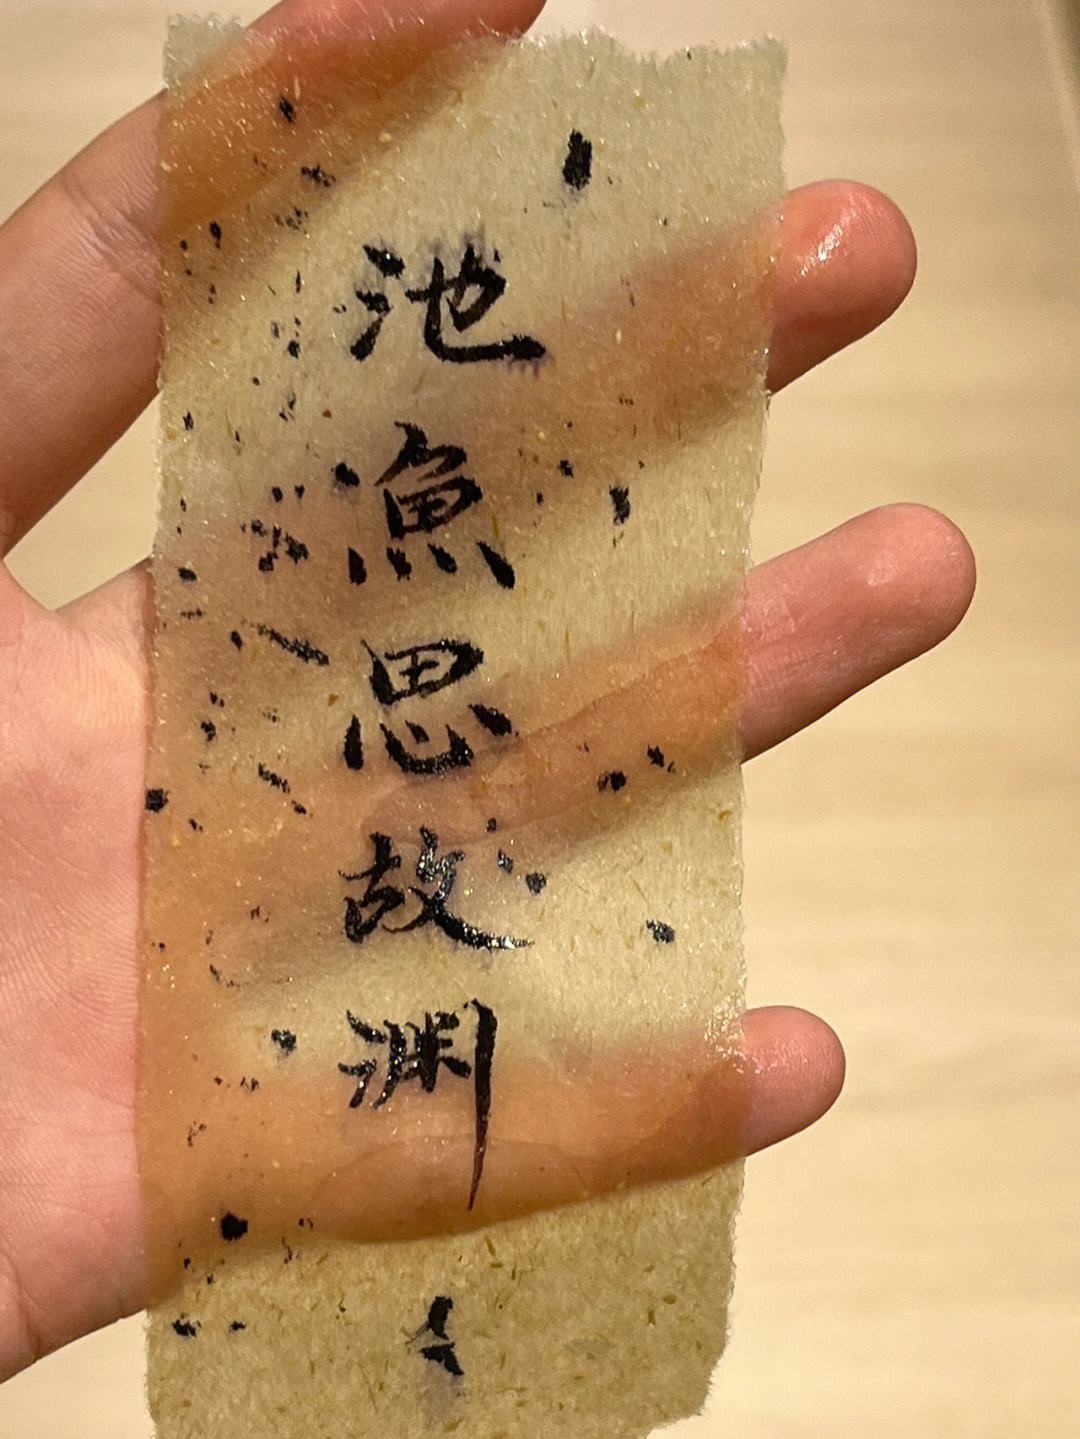 池魚思故淵